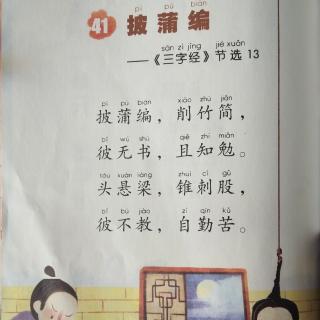 pī pú biān
41 披蒲编
sān zì jīng jié xuǎn
——《三字经》节选 13
pī pú biān xiāo zhú jiǎn
披蒲编，削竹简，
bǐ wú shū qiě zhī miǎn
彼无书，且知勉。
tóu xuán liáng zhuī cì gǔ
头悬梁，锥刺股，
bǐ bú jiào zì qín kǔ
彼不教，自勤苦。